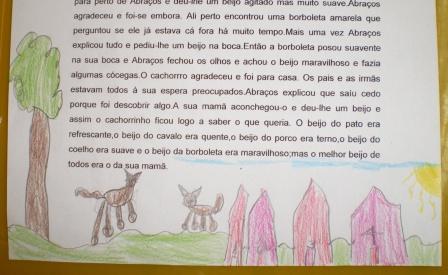 para perto de Abraços e deu-lhe um beijo agitado mas muito suave.Abraços
agradeceu e foi-se embora. Ali perto encontrou uma borboleta amarela que
perguntou se ele já estava cá fora há muito tempo.Mais uma vez Abraços
explicou tudo e pediu-lhe um beijo na boca.Então a borboleta posou suavente
na sua boca e Abraços fechou os olhos e achou o beijo maravilhoso e fazia
algumas cócegas.O cachorrro agradeceu e foi para casa. Os pais e as irmãs
estavam todos á sua espera preocupados.Abraços explicou que saíu cedo
porque foi descobrir algo.A sua mamã aconchegou-o e deu-lhe um beijo e
assim o cachorrinho ficou logo a saber o que queria. O beijo do pato era
refrescante,o beijo do cavalo era quente,o beijo do porco era terno,o beijo do
coelho era suave e o beijo da borboleta era maravilhoso;mas o melhor beijo de
todos era o da sua mamã.